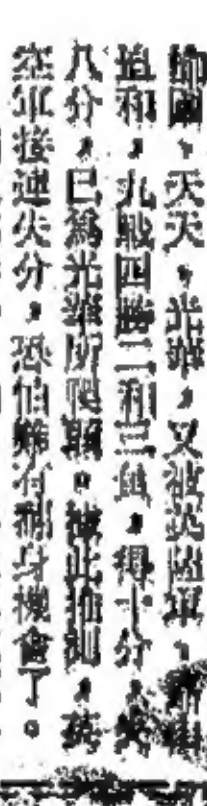 園、天天、光華，又被英陸軍、
追和，九戰四勝二和三負，得十分，
八分，已為光華所。據此推測，英
空軍接連失分，恐怕難有翻身機會了。